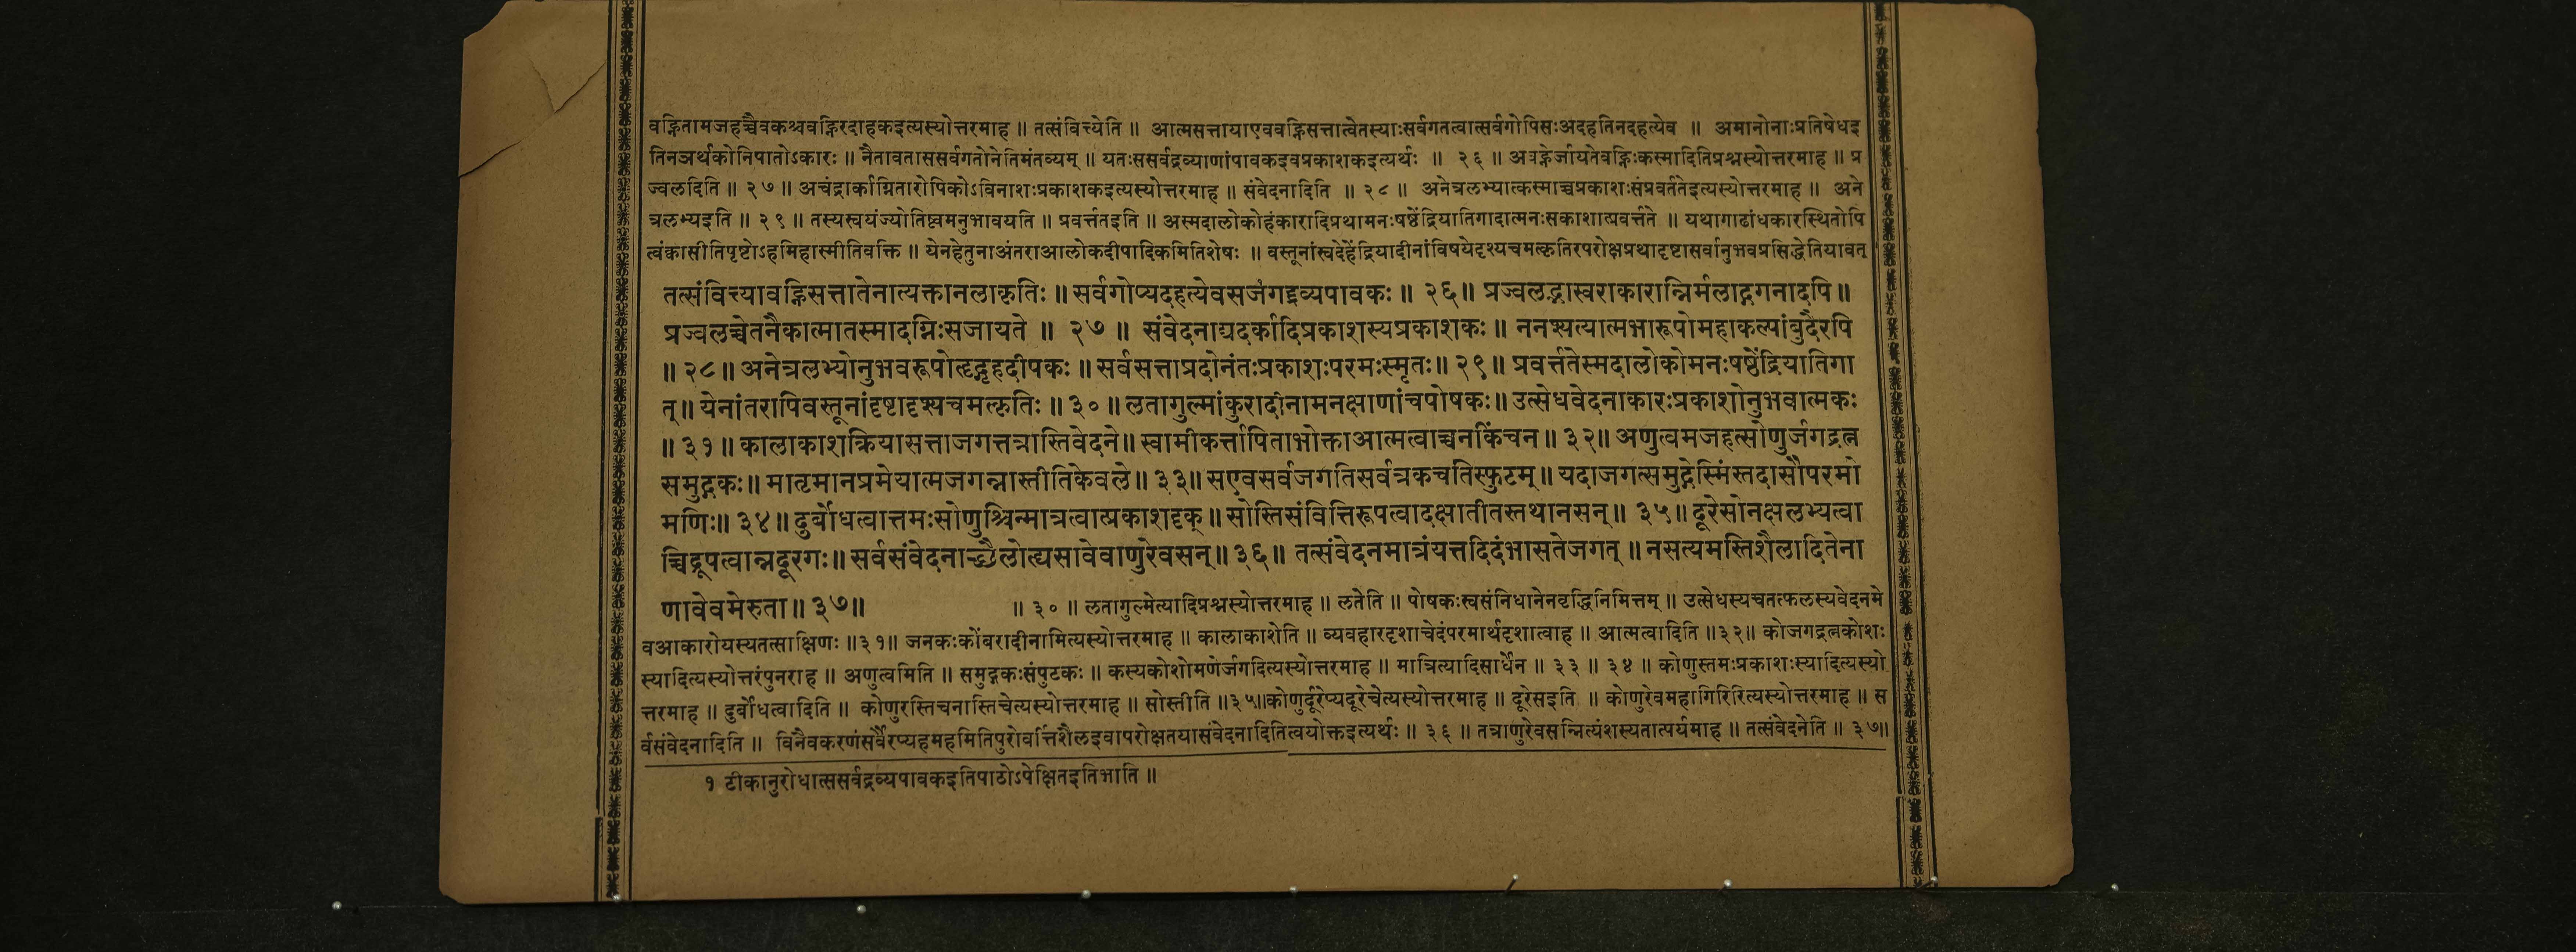 वह्नितामजहच्चैवकश्चवह्निरदाहकइत्यस्योत्तरमाह ॥ तत्संवित्त्येति ॥ आत्मसत्तायाएववह्निसत्तात्वेतस्याःसर्वगतत्वात्सर्वगोपिसःअदहतिनदहत्येव ॥ अमानोनाःप्रतिषेधइ
तिनञर्थकोनिपातोऽकारः ॥ नैतावताससर्वगतोनेतिमंतव्यम् ॥ यतःससर्वद्रव्याणांपावकइवप्रकाशकइत्यर्थः ॥ २६ ॥ अवह्नेर्जायतेवह्निःकस्मादितिप्रश्नस्योत्तरमाह ॥ प्र
ज्वलदिति ॥ २७ ॥ अचंद्रार्काग्नितारोपिकोऽविनाशःप्रकाशकइत्यस्योत्तरमाह ॥ संवेदनादिति ॥ २८ ॥ अनेत्रलभ्यात्कस्माच्चप्रकाशःसंप्रवर्ततेइत्यस्योत्तरमाह ॥ अने
त्रलभ्यइति ॥ २९ ॥ तस्यस्वयंज्योतिष्ट्वमनुभावयति ॥ प्रवर्त्ततइति ॥ अस्मदालोकोहंकारादिप्रथामनःषष्ठेंद्रियातिगादात्मनःसकाशात्प्रवर्त्तते ॥ यथागाढांधकारस्थितोपि
त्वंक्कासीतिपृष्टोऽहमिहास्मीतिवक्ति ॥ येनहेतुनाअंतराआलोकदीपादिकमितिशेषः ॥ वस्तूनांस्वदेहेंद्रियादीनांविषयेदृश्यचमत्कृतिरपरोक्षप्रथादृष्टासर्वानुभवप्रसिद्धेतियावत्
तत्संवित्त्यावह्निसत्तातेनात्यक्तानलाकृतिः ॥ सर्वगोप्यदहत्येवसजंगद्द्रव्यपावकः ॥ २६ ॥ प्रज्वलद्भास्वराकारान्निर्मलाद्गगनादपि ॥
प्रज्वलच्चेतनैकात्मातस्मादग्निःसजायते ॥ २७ ॥ संवेदनाद्यदर्कादिप्रकाशस्यप्रकाशकः ॥ ननश्यत्यात्मभारूपोमहाकल्पांबुदैरपि
॥ २८ ॥ अनेत्रलभ्योनुभवरूपोत्हृद्गृहदीपकः ॥ सर्वसत्ताप्रदोनंतःप्रकाशःपरमःस्मृतः ॥ २९ ॥ प्रवर्त्ततेस्मदालोकोमनःषष्ठेंद्रियातिगा
त् ॥ येनांतरापिवस्तूनांदृष्टादृश्यचमत्कृतिः ॥ ३० ॥ लतागुल्मांकुरादीनामनक्षाणांचपोषकः ॥ उत्सेधवेदनाकारःप्रकाशोनुभवात्मकः
॥ ३१ ॥ कालाकाशक्रियासत्ताजगत्तत्रास्तिवेदने ॥ स्वामीकर्त्तापिताभोक्ताआत्मत्वाच्चनकिंचन ॥ ३२ ॥ अणुत्वमजहत्सोणुर्जगद्रत्न
समुद्गकः ॥ मातृमानप्रमेयात्मजगन्नास्तीतिकेवले ॥ ३३ ॥ सएवसर्वजगतिसर्वत्रकचतिस्फुटम् ॥ यदाजगत्समुद्गेस्मिंस्तदासौपरमो
मणिः ॥ ३४ ॥ दुर्बोधत्वात्तमःसोणुश्चिन्मात्रत्वात्प्रकाशदृक् ॥ सोस्तिसंवित्तिरूपत्वादक्षातीतस्तथानसन् ॥ ३५ ॥ दूरेसोनक्षलभ्यत्वा
च्चिद्रूपत्वान्नदूरगः ॥ सर्वसंवेदनाच्छैलोत्द्यसावेवाणुरेवसन् ॥ ३६ ॥ तत्संवेदनमात्रंयत्तदिदंभासतेजगत् ॥ नसत्यमस्तिशैलादितेना
णावेवमेरुता ॥ ३७ ॥ ॥ ३० ॥ लतागुल्मेत्यादिप्रश्नस्योत्तरमाह ॥ लतेति ॥ पोषकःस्वसंनिधानेनवृद्धिनिमित्तम् ॥ उत्सेधस्यचतत्फलस्यवेदनमे
वआकारोयस्यतत्साक्षिणः ॥३१॥ जनकःकोंबरादीनामित्यस्योत्तरमाह ॥ कालाकाशेति ॥ व्यवहारदृशाचेदंपरमार्थदृशात्वाह ॥ आत्मत्वादिति ॥३२॥ कोजगद्रत्नकोशः
स्यादित्यस्योत्तरंपुनराह ॥ अणुत्वमिति ॥ समुद्गकःसंपुटकः ॥ कस्यकोशोमणेर्जगदित्यस्योत्तरमाह ॥ मात्रित्यादिसार्धेन ॥ ३३ ॥ ३४ ॥ कोणुस्तमःप्रकाशःस्यादित्यस्यो
त्तरमाह ॥ दुर्बोधत्वादिति ॥ कोणुरस्तिचनास्तिचेत्यस्योत्तरमाह ॥ सोस्तीति ॥३५॥कोणुर्दूरेप्यदूरेचेत्यस्योत्तरमाह ॥ दूरेसइति ॥ कोणुरेवमहागिरिरित्यस्योत्तरमाह ॥ स
र्वसंवेदनादिति ॥ विनैवकरणंसर्वैरप्यहमहमितिपुरोवर्त्तिशैलइवापरोक्षतयासंवेदनादितित्वयोक्तइत्यर्थः ॥ ३६ ॥ तत्राणुरेवसन्नित्यंशस्यतात्पर्यमाह ॥ तत्संवेदनेति ॥ ३७॥
१ टीकानुरोधात्ससर्वद्रव्यपावकइतिपाठोऽपेक्षितइतिभाति ॥